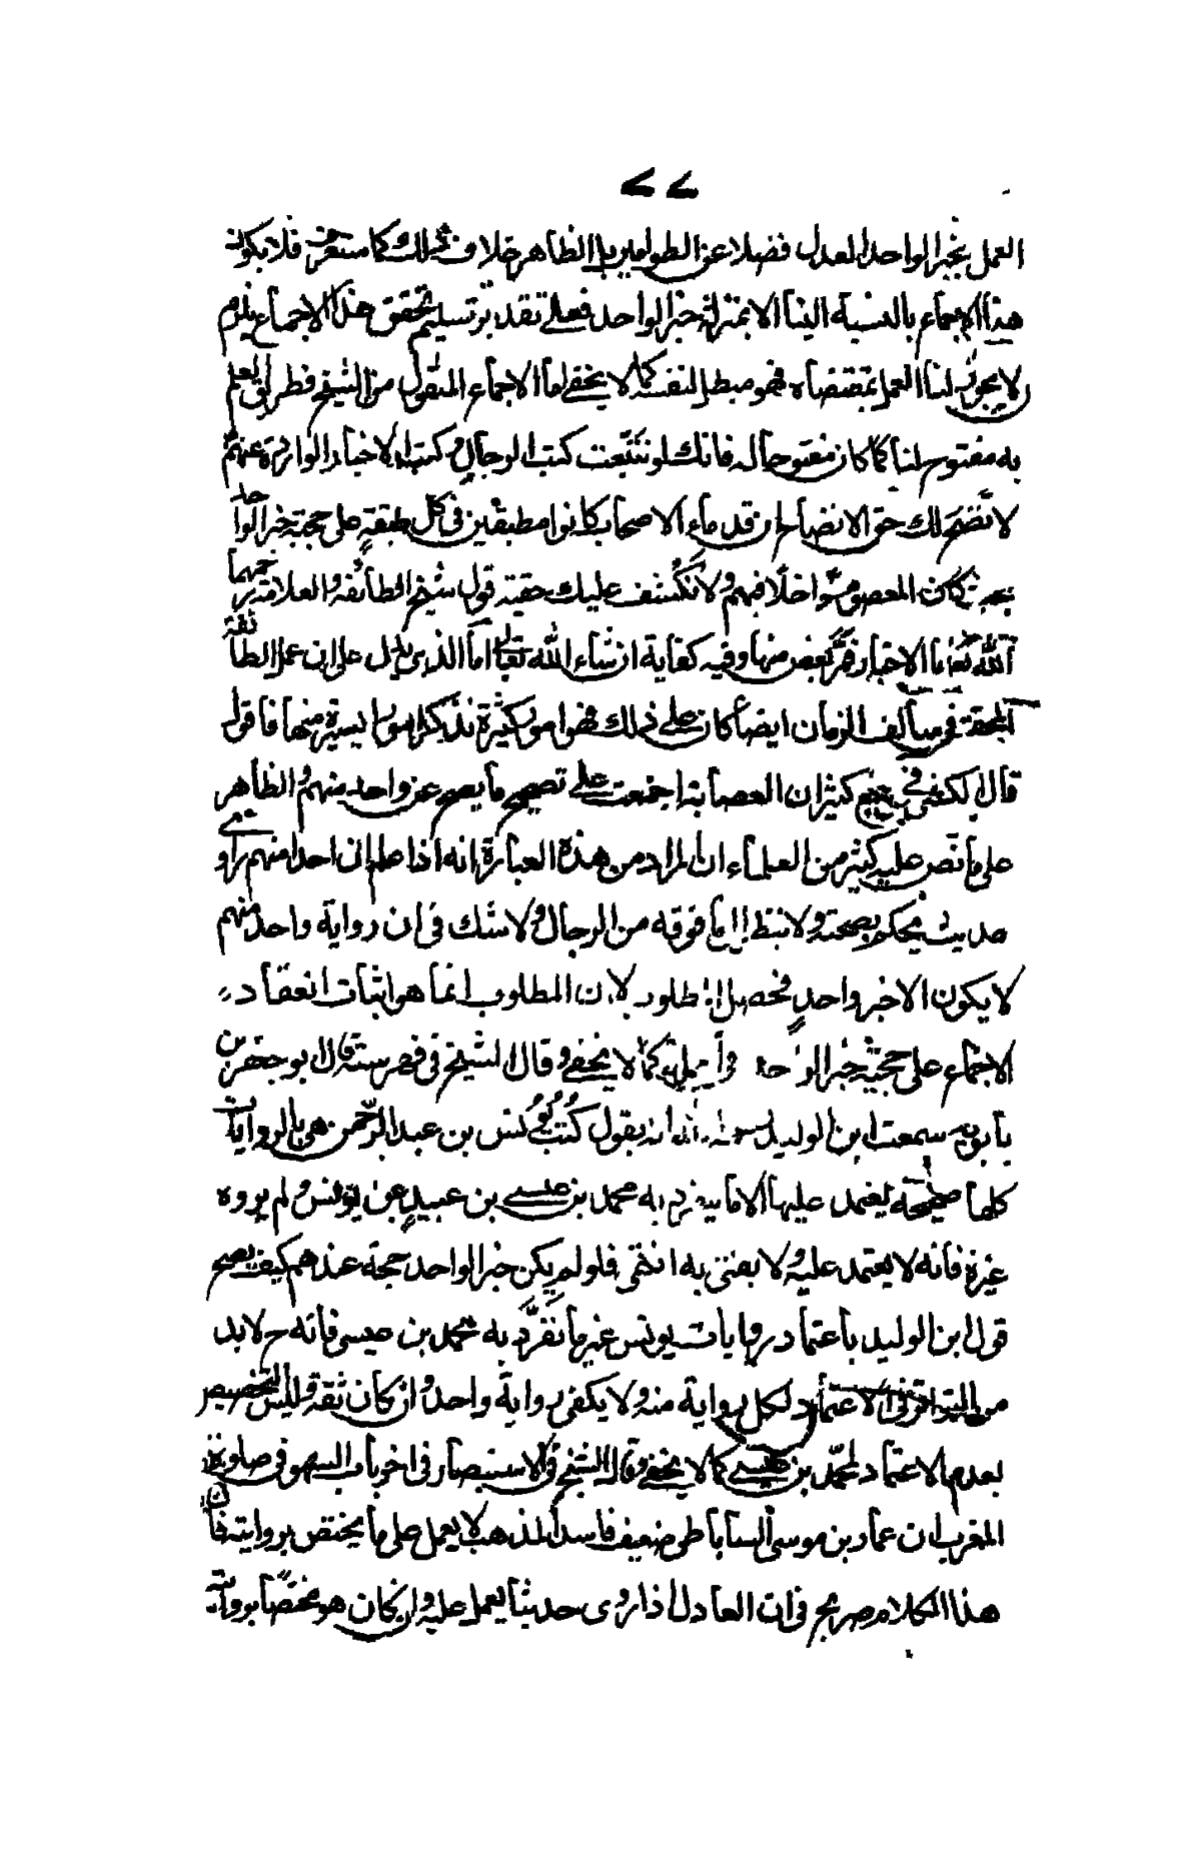 العمل بخبر الواحد العدل فضلا عن الطوامير بل الظاهر خلاف ذلك كما ستعرف فلا يكون
هذا الاجماع بالنسبة الينا الا بمنزلة خبر الواحد فعلى تقدير تسليم تحقق هذا الاجماع يلزم
لا يجوز لنا العمل بمقتضاه فهو مبطل لنفسه كما لا يخفى لما الاجماع المنقول من الشيخ فطريق العلم
به مفتوح لنا كما كان مفتوحا له فانك لو تتبعت كتب الرجال وكتب الاخبار الواردة عنهم
لاتضح لك حق الاتضاح ان قدماء الاصحاب كانوا مطبقين في كل طبقة على حجية خبر الواحد
بحيث كان المعصوم داخلا فيهم ولانكشف عليك حقية قول شيخ الطائفة والعلامة رحمهما
الله تعالى اما الاخبار فمر بعض منها وفيه كفاية ان شاء الله تعالى اما الذي يدل على ان عمل الطائفة
المحقة في سالف الزمان ايضا كان على ذلك فهو امور كثيرة نذكر امورا يسيرة منها فاقول
قال الكشي في كثير ان العصابة اجمعت على تصحيح ما يصح عن واحد منهم والظاهر
على ما نص عليه كثير من العلماء ان المراد من هذه العبارة انه اذا علم ان احدا منهم راوى
حديث يحكم بصحته ولا ينظر الى ما فوقه من الرجال ولا شك في ان رواية واحد منهم
لا يكون الا خبر واحد فحصل المطلوب لان المطلوب انما هو اثبات انعقاد
الاجماع على حجية خبر الواحد في الجملة كما لا يخفى وقال الشيخ في فهرسته قال ابو جعفر بن
بابويه سمعت ابن الوليد رحمه الله انه يقول كتب يونس بن عبد الرحمن هي بالروايات
كلها صحيحة يعتمد عليها الا ما ينفرد به محمد بن عيسى بن عبيد عن يونس ولم يروه
غيره فانه لا يعتمد عليه ولا يفتى به انتهى فلو لم يكن خبر الواحد حجة عندهم كيف يصح
قول ابن الوليد باعتماد روايات يونس غير ما تفرد به محمد بن عيسى فانه ح لابد
من التواتر في الاعتماد لكل رواية منه ولا يكفى رواية واحد وان كان ثقة وليس التخصيص
بعدم الاعتماد لمحمد بن عيسى كما لا يخفى وقال الشيخ في الاستبصار في اخر باب السهو في صلوة
المغرب ان عمار بن موسى الساباطي ضعيف فاسد المذهب لا يعمل على ما يختص بروايته فان
هذا الكلام صريح في ان العادل اذا روى حديثا يعمل عليه وان كان هو مختصا بروايته